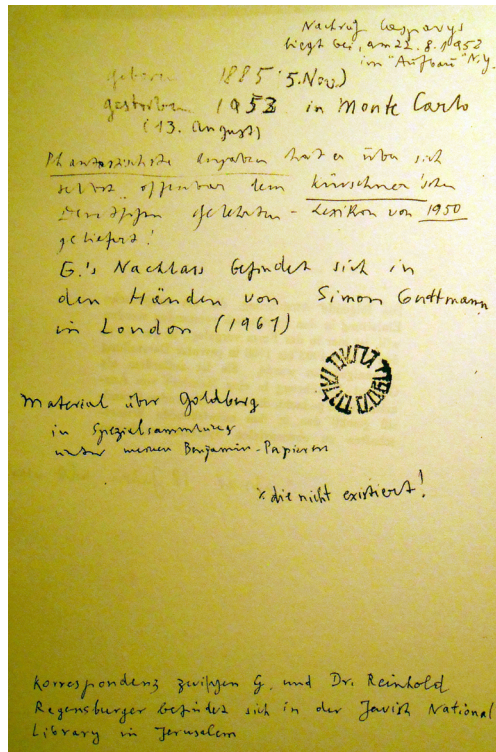 Nachruf Casparys
liegt bei, am 22. 8. 1952
im "Aufbau" N.Y.
geboren 1885 5. Nov.)
gestorben 1952 in Monte Carlo
(13. August)
Phantastischste Angaben hat er über sich
selbst offenbar dem Kürschner'schen
Deutschen Gelehrten-Lexikon von 1950
geliefert!
G.'s Nachlass befindet sich in
den Händen von Simon Guttmann
in London (1961)
Material über Goldberg
in Spezialsammlung
unter meinen Benjamin-Papieren
die nicht existiert!
Korrespondenz zwischen G. und Dr. Reinhold
Regensburger befindet sich in der Jewish National
Library in Jerusalem